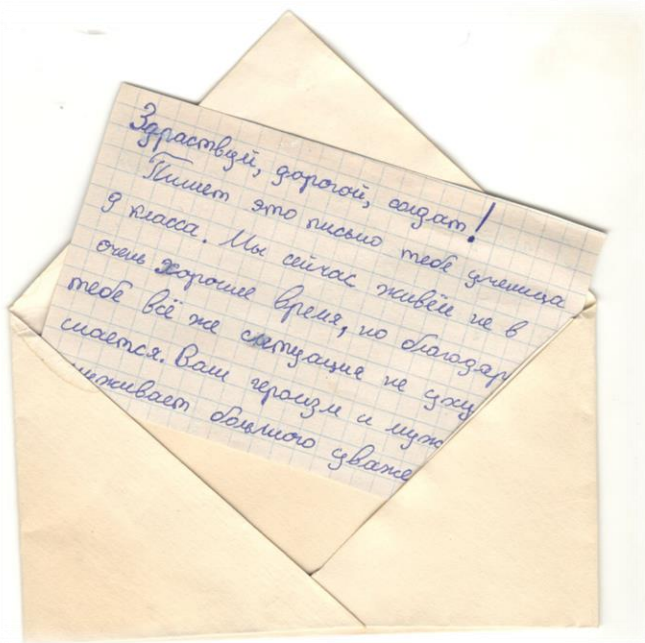 Здраствуй, дорогой, солдат!
Пишет это письмо тебе ученица
9 класса. Мы сейчас живём не в
очень хорошие время, но благодар
тебе всё же ситуация не уху
шается. Ваш героизм и муж
живает большого уваже